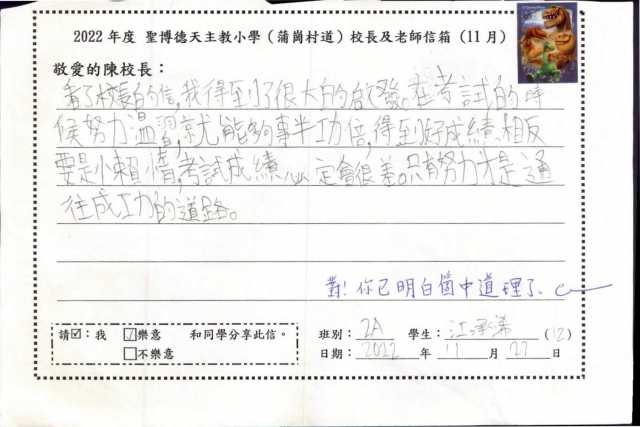 2022 年度 聖博德天主教小學(蒲崗村道)校長及老師信箱(11月)
敬愛的陳校長:
看了校長的信,我得到了很大的啟發。在考試的時
候努力溫習,就能夠事半功倍,得到好成績,相反
要是懶惰,考試成績必定會很差。只有努力才是通
往成功的道路。
對!你已明白箇中道理了。
請☑:我 ☑樂意 和同學分享此信。
□不樂意
班別: 2A 學生: 江 (12)
日期: 2022 年 11 月 27 日